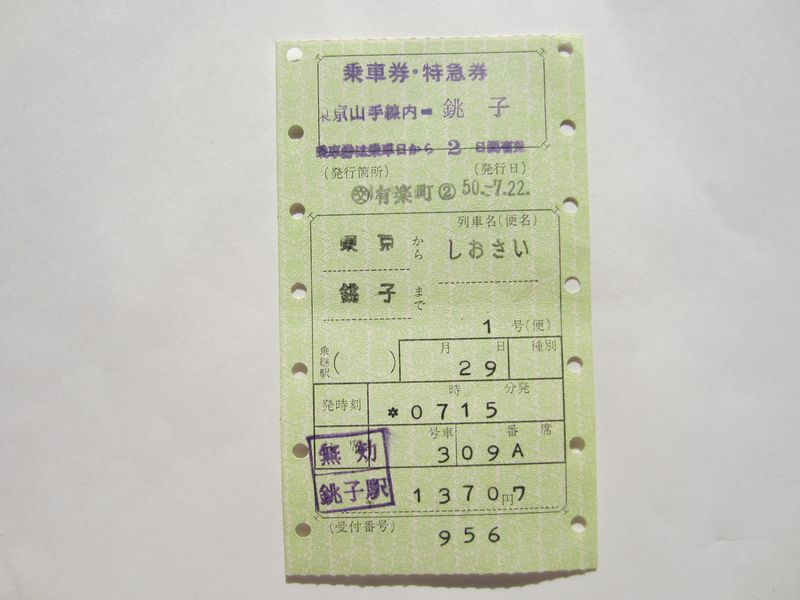 乗車券・特急券
京山手線内━ 銚子
乗車券は乗車日から 2 日間有効
(発行箇所) (発行日)
有楽町② 50.-7.22.
列車名(便名)
東京 から しおさい
銚子 まで
1 号(便)
乗継駅 ( ) 月 日 種別
29
発時刻 時 分発
*0715
号車 番 席
席 3 09A
無効
銚子駅
1370円7
(受付番号)
956